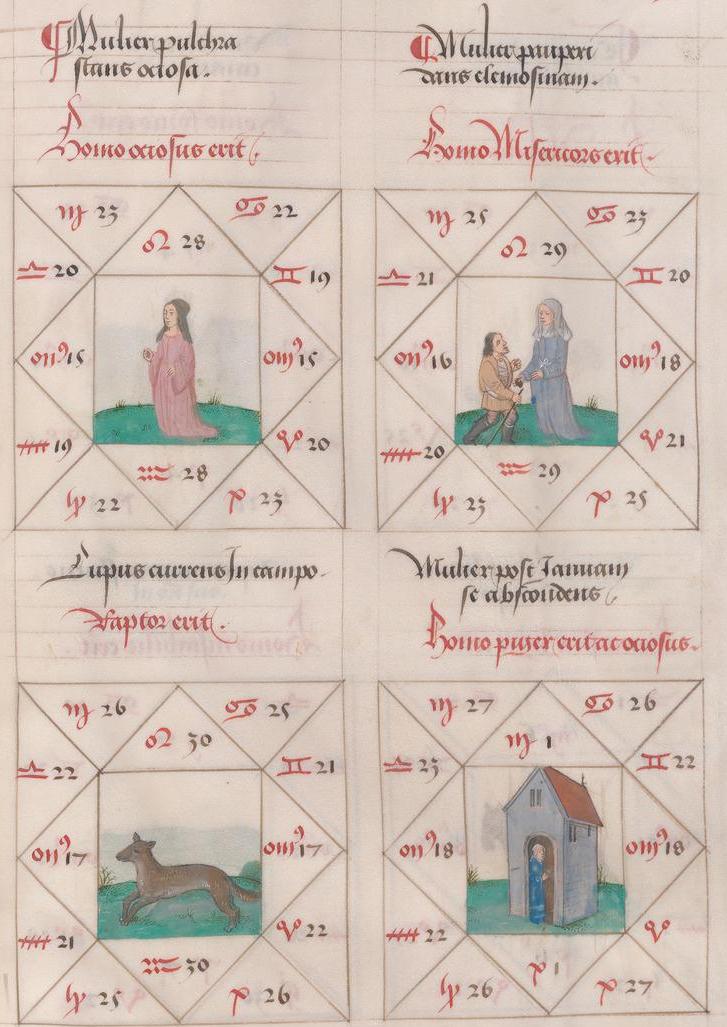 ¶ Mulier pulchra
stans ociosa.
Homo ociosus erit.
♍ 23
♋ 22
♌ 28
♎ 20
♊ 19
15
15
19
♈ 20
♒ 28
22
♓ 23
¶ Mulier pauperi
dans elemosinam.
Homo Misericors erit.
♍ 25
♋ 23
♌ 29
♎ 21
♊ 20
16
18
20
♈ 21
♒ 29
23
♓ 25
Lupus currens In campo.
Raptor erit.
♍ 26
♋ 25
♌ 30
♎ 22
♊ 21
17
17
21
♈ 22
♒ 30
25
♓ 26
Mulier post Ianuam
se abscondens
Homo piger erit ac ociosus.
♍ 27
♋ 26
♍ 1
♎ 23
♊ 22
18
18
22
♈
♓ 1
26
♓ 27